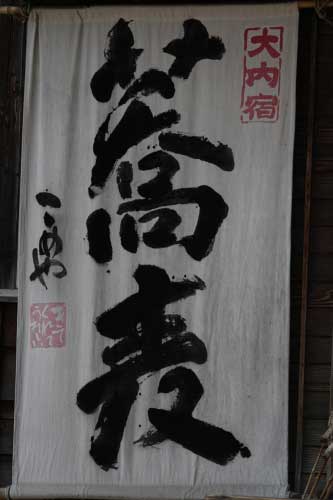 大内宿
蕎麦
こめや